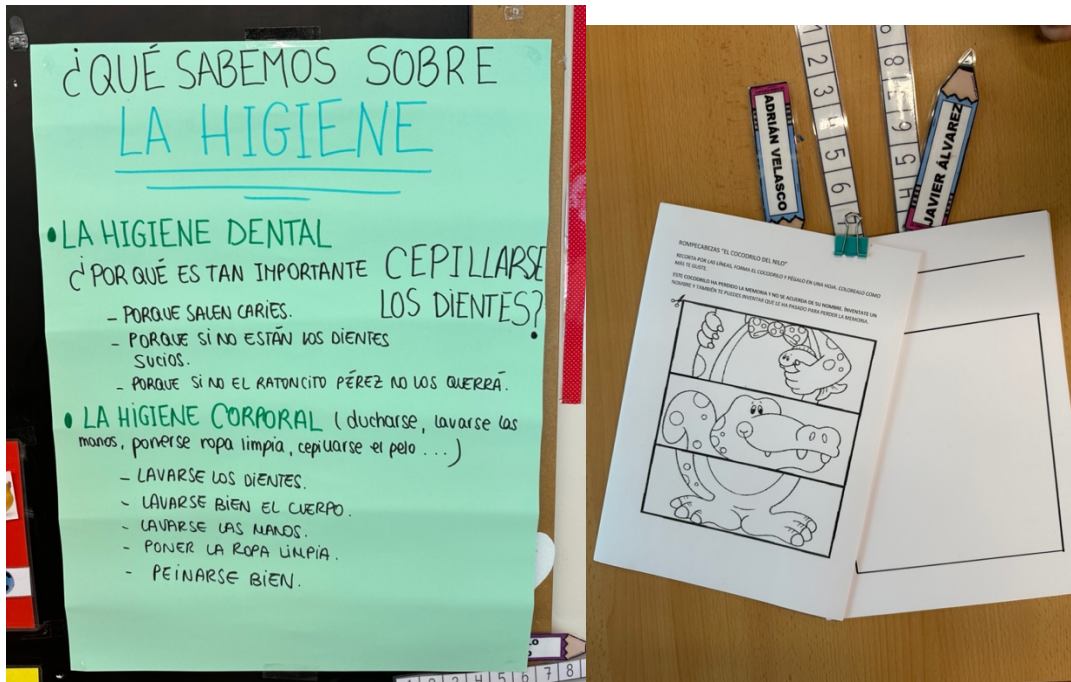 ¿QUÉ SABEMOS SOBRE
LA HIGIENE
• LA HIGIENE DENTAL
¿POR QUÉ ES TAN IMPORTANTE CEPILLARSE
LOS DIENTES?
- PORQUE SALEN CARIES.
- PORQUE SI NO ESTÁN LOS DIENTES
SUCIOS.
- PORQUE SI NO EL RATONCITO PÉREZ NO LOS QUERRÁ.
• LA HIGIENE CORPORAL (ducharse, lavarse las
manos, ponerse ropa limpia, cepillarse el pelo ...)
- LAVARSE LOS DIENTES.
- LAVARSE BIEN EL CUERPO.
- LAVARSE LAS MANOS.
- PONER LA ROPA LIMPIA.
- PEINARSE BIEN.
1 2 3 4 5 6 7 8
1 2 3 4 5 6
8 7 6 5 4
ADRIÁN VELASCO
JAVIER ÁLVAREZ
ROMPECABEZAS "EL COCODRILO DEL NILO"
RECORTA POR LAS LÍNEAS, FORMA EL COCODRILO Y PÉGALO EN UNA HOJA. COLOREALO COMO
MÁS TE GUSTE.
ESTE COCODRILO HA PERDIDO LA MEMORIA Y NO SE ACUERDA DE SU NOMBRE. INVENTATE UN
NOMBRE Y TAMBIÉN TE PUEDES INVENTAR QUE LE HA PASADO PARA PERDER LA MEMORIA.